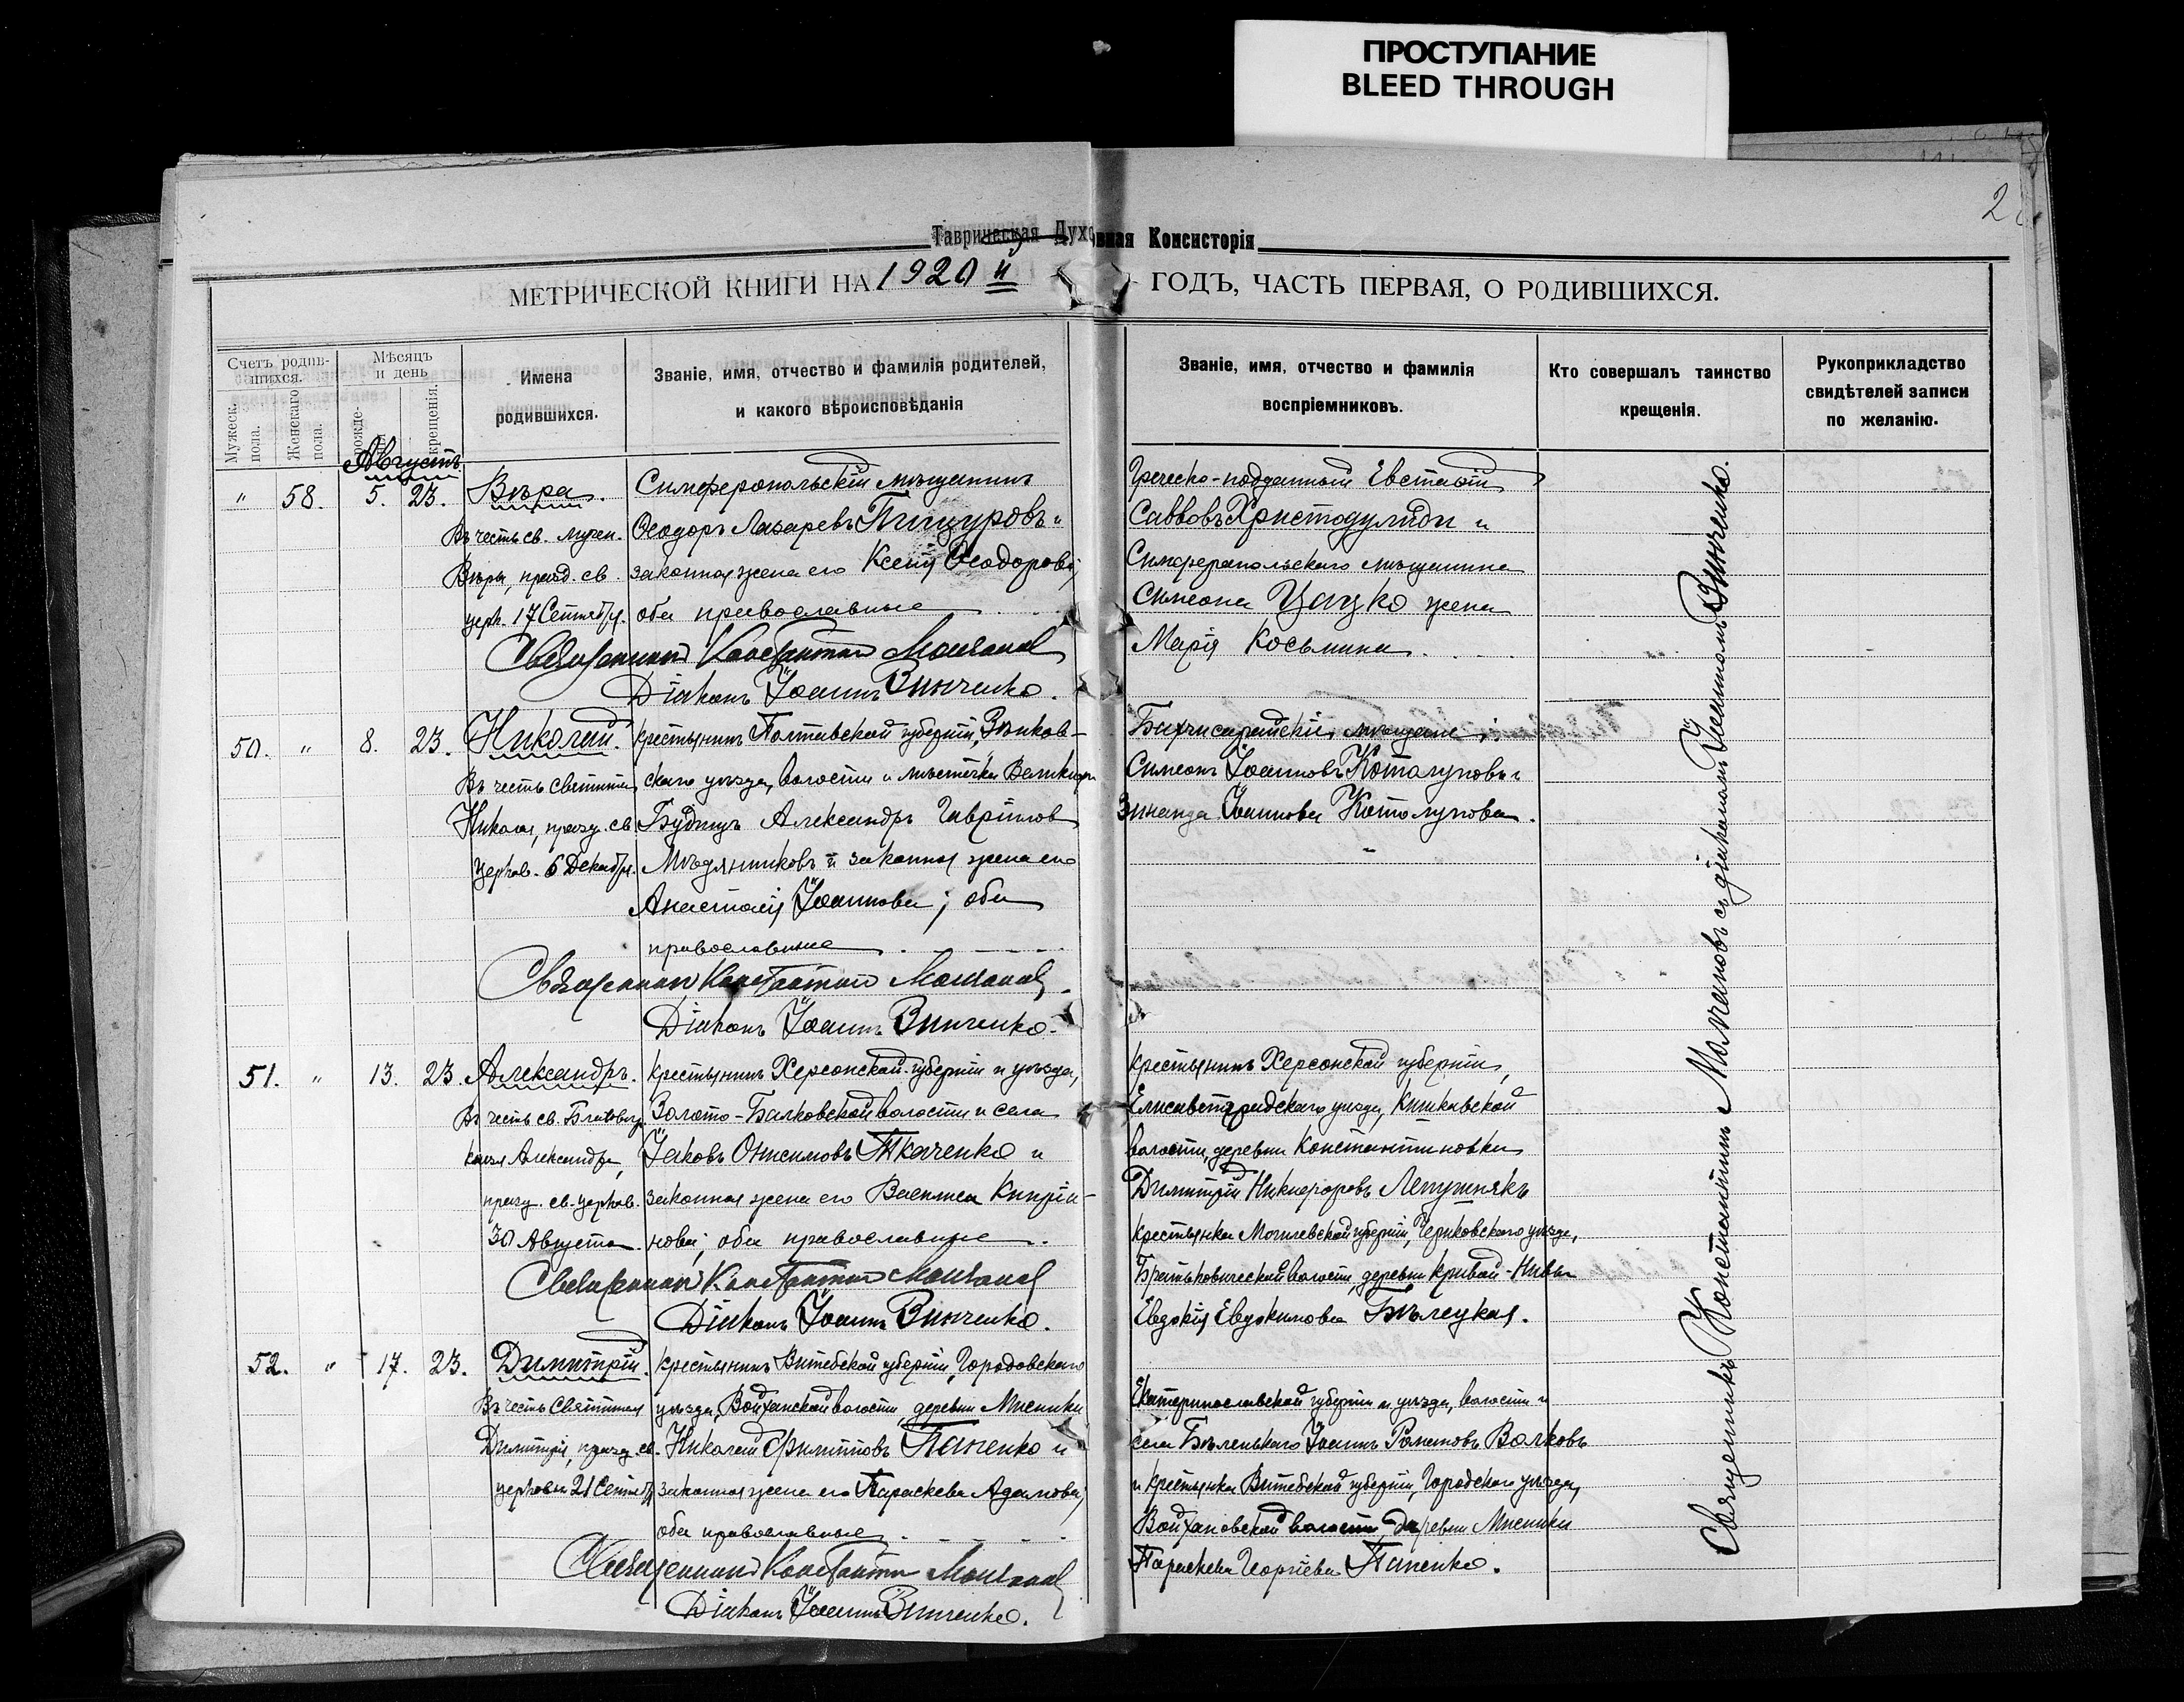 ПРОСТУПАНИЕ
BLEED THROUGH
2
Таврическая Духовная Консисторія
МЕТРИЧЕСКОЙ КНИГИ НА 1920 й ГОДЪ, ЧАСТЬ ПЕРВАЯ, О РОДИВШИХСЯ.
Счетъ родив-
шихся.
Мужеск.
пола.
Женскаго
пола.
Мѣсяцъ
и день
рожде-
крещенія.
Имена
родившихся.
Званіе, имя, отчество и фамилія родителей,
и какого вѣроисповѣданія
Званіе, имя, отчество и фамилія
воспріемниковъ.
Кто совершалъ таинство
крещенія.
Рукоприкладство
свидѣтелей записи
по желанію.
Августъ
" 58. 5. 23. Вѣра.
Въ честь св. мучен.
Вѣры, празд. св.
церк. 17 Сентября.
Симферопольскій мѣщанинъ
Ѳеодоръ Лазаревъ и
законная жена его Ксенія Ѳеодорова,
оба православные
Священникъ Константинъ Молчановъ
Діаконъ Іоаннъ Винченко.
Греческо-подданный Евстаѳій
Саввовъ Христодулиди и
Симферопольскаго мѣщанина
Симеона Цацко жена
Марія Косьмина.
50. " 8. 23. Николай.
Въ честь Святителя
Николая, празд. св.
церков. 6 Декабря.
Крестьянинъ Полтавской губерніи, Зѣньков-
скаго уѣзда, волости и мѣстечка Великихъ
Будищъ Александръ Гавріиловъ
Мѣдяниковъ и законная жена его
Анастасія Іоаннова; оба
православные
Священникъ Константинъ Молчановъ
Діаконъ Іоаннъ Винченко.
Бахчисарайскіе мѣщане:
Симеонъ Іоанновъ Котолуповъ и
Зинаида Іоаннова Котолупова.
51. " 13. 23. Александръ.
Въ честь св. Благовѣр.
князя Александра,
празд. св. церков.
30 Августа.
Крестьянинъ Херсонской губерніи и уѣзда,
Золото-Балковской волости и села
Іаковъ Онисимовъ Ткаченко и
законная жена его Васслиса Кипріа-
нова; оба православные.
Священникъ Константинъ Молчановъ
Діаконъ Іоаннъ Винченко.
Крестьянинъ Херсонской губерніи,
Елисаветградскаго уѣзда,
волости, деревни Константиновки
Димитрій Никифоровъ Лепушнякъ
крестьянка Могилевской губерніи, Чериковскаго уѣзда,
волости, деревни Кривой-Нивы
Евдокія Евдокимова Бѣлецкая.
52. " 17. 23. Димитрій.
Въ честь Святителя
Димитрія, празд. св.
церковью 21 Сентяб.
Крестьянинъ Витебской губерніи, Городовскаго
уѣзда, Войханской волости, деревни Мисники
Николай Филипповъ Папенко и
законная жена его Параскева Адамова,
оба православные
Священникъ Константинъ Молчановъ
Діаконъ Іоаннъ Винченко.
Екатеринославской губерніи и уѣзда, волости и
села Бѣленькаго Іоаннъ Романовъ Волковъ
и крестьянка Витебской губерніи, Городскаго уѣзда,
Войхановской волости, деревни Мисники
Параскева Георгіева Папенко.
Священникъ Константинъ Молчановъ съ діакономъ Іоанномъ Винченко.